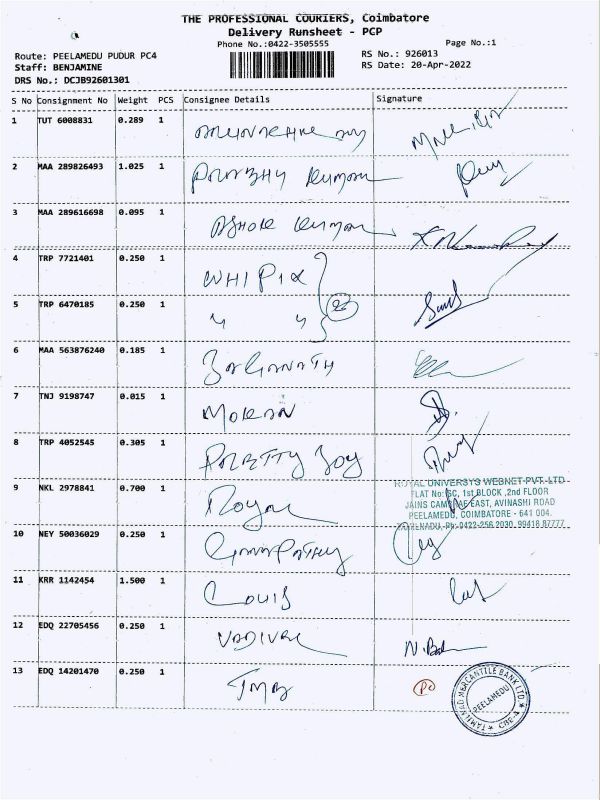 THE PROFESSIONAL COURIERS, Coimbatore
Delivery Runsheet - PCP
Phone No.:0422-3505555 Page No.:1
Route: PEELAMEDU PUDUR PC4 RS No.: 926013
Staff: BENJAMINE RS Date: 20-Apr-2022
DRS No.: DCJB92601301
S No Consignment No Weight PCS Consignee Details Signature
1 TUT 6008831 0.289 1
2 MAA 289826493 1.025 1 PRABHU KUMAR
3 MAA 289616698 0.095 1 ASHOK KUMAR
4 TRP 7721401 0.250 1 WHIPIX
5 TRP 6470185 0.250 1 " "
6 MAA 563876240 0.185 1 JAGANATH
7 TNJ 9198747 0.015 1 MOHAN
8 TRP 4052545 0.305 1 PRETTY JOY
9 NKL 2978841 0.700 1 ROYAL
ROYAL UNIVERSYS WEBNET PVT. LTD
FLAT No: 5C, 1st BLOCK ,2nd FLOOR
JAINS EAST, AVINASHI ROAD
PEELAMEDU, COIMBATORE - 641 004.
TAMILNADU. Ph: 0422-256 2030, 99418 87777
10 NEY 50036029 0.250 1 GANAPATHY
11 KRR 1142454 1.500 1 LOUIS
12 EDQ 22705456 0.250 1 VADIVEL
13 EDQ 14201470 0.250 1 TMB
TAMILNAD MERCANTILE BANK LTD
PEELAMEDU
CBE-4